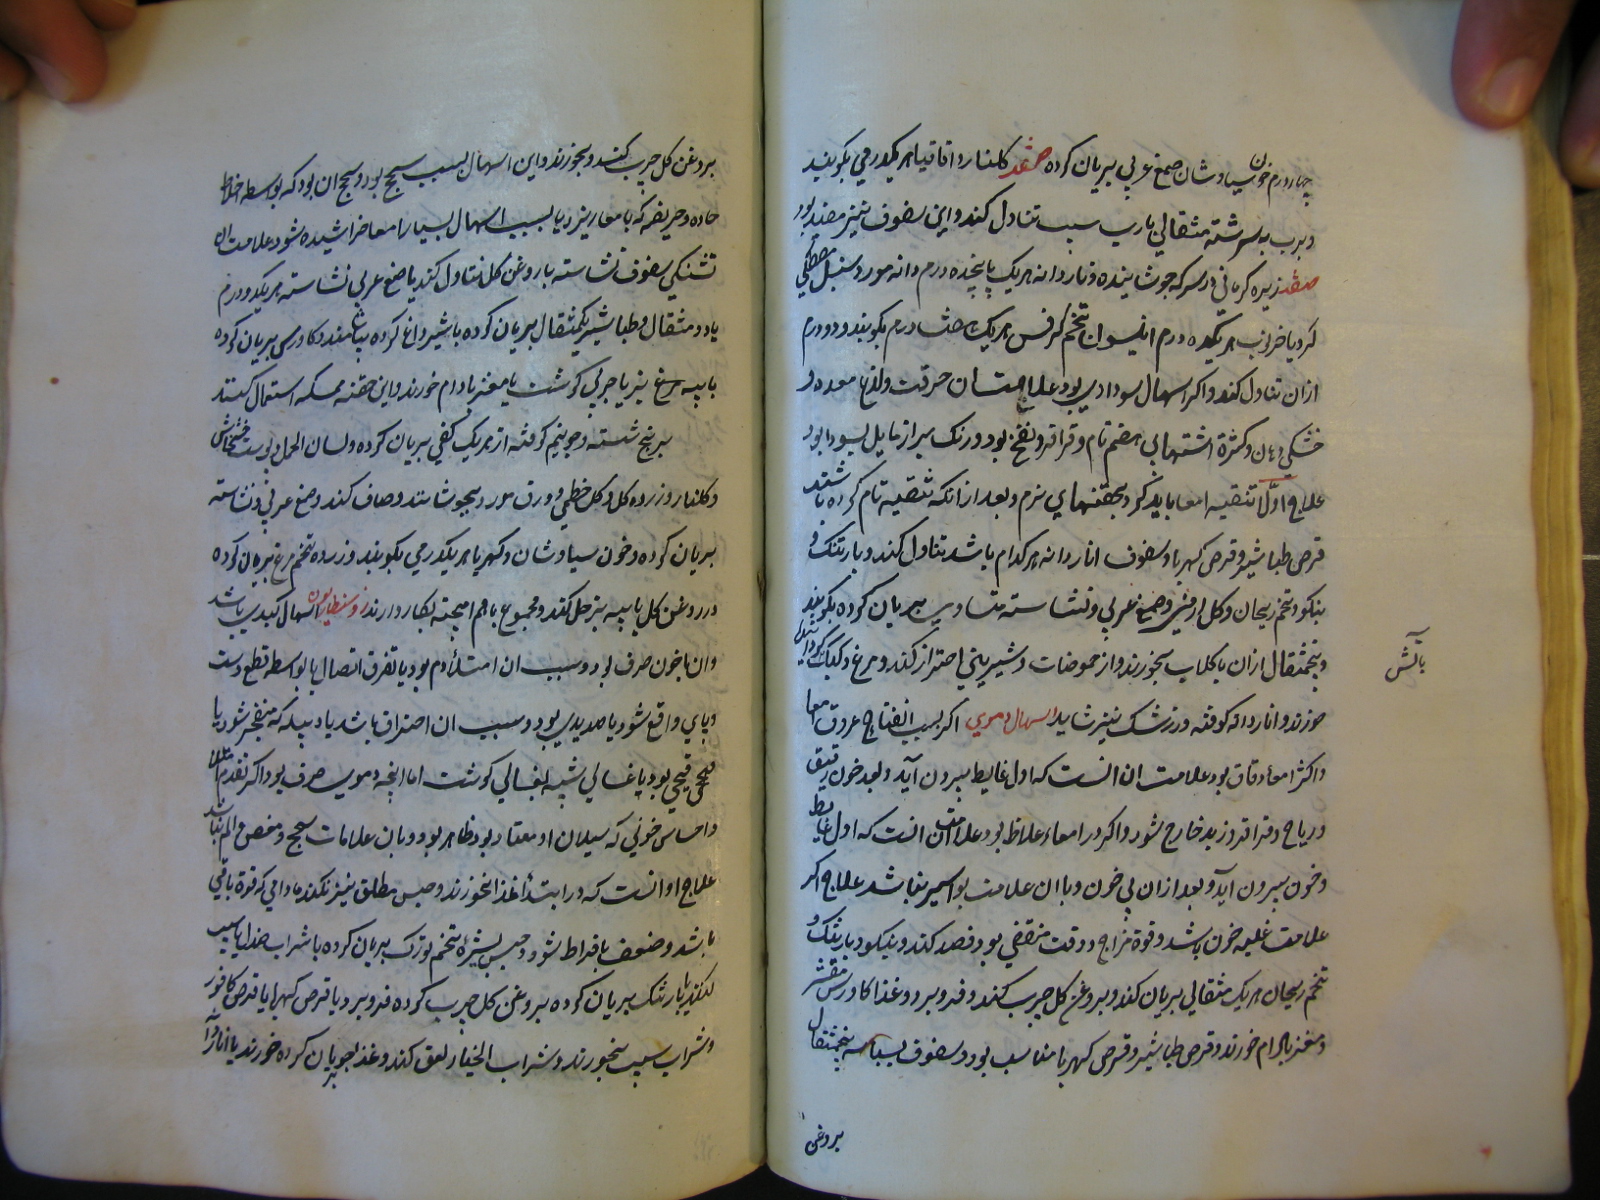 چهاردرم خون سیاوشان صمغ عربی بریان کرده صفد کلنار و اقاقیا هریکدرمی بکوبند
و برب به سرشته مثقالی بارب سیب تناول کند و این سفوف نیز مفید بود
صفد زیره کرمانی در سرکه جوشانیده و ناردانه هریک پانجده درم دانه مورد سنبل مصطکی
کرویا خرنوب هریکده درم انیسون تخم کرفس هریک هشت درم بکوبند و دو درم
ازان تناول کند و اکر اسهال سوداوی بود علامت ان حرقت ولذع معده و
خشکی دهان و کثرة اشتهایی هضم تام و قراقر و نفخ بود و رنک براز مایل بسودا بود
علاج اولا تنقیه امعا باید کرد بحقنهای نرم و بعد ازانکه تنقیه تام کرده باشند
قرص طباشیر و قرص کهربا و سفوف اناردانه هرکدام باشد تناول کند و بارتنک و
بنکو و تخم ریحان و کل ارمنی و صمغ عربی و نشاسته متساوی بریان کرده بکوبند
و پنجمثقال ازان با کلاب بخورند و از حموضات و شیرینی احتراز کند و مرغ و کبک
باتش
خورند و اناردانه کوفته و زرشک نیز شاید اسهال دموی اکر بسبب انفتاح عروق امعا
و اکثر امعا دقاق بود علامت ان انست که اول غایط بیرون آید و بعد خون رقیق
و ریاح و قراقر و زبد خارج شود و اکر در امعاء غلاظ بود علامت ان انست که اول غایط
و خون بیرون آید و بعد ازان بی خون و باان علامت بواسیر نباشد علاج اکر
علامت غلبه خون باشد و قوة مزاج و وقت مقتضی بود فصد کند و بنکو و بارتنک و
تخم ریحان هریک مثقالی بریان کند و بروغن کل چرب کند و فرو برد و غذا کاورس مقشر
و مغز بادام خورند و قرص طباشیر و قرص کهربا مناسب بود و سفوف پنجمثقال
بروغن
بروغن کل چرب کند و بخورند و این اسهال بسبب سحج بود و سحج ان بود که بواسطه اخلاط
حاده و حریفه که بامعا ریزد یا بسبب اسهال بسیار امعا خراشیده شود و علامت ان
تشنکی سفوف نشاسته با روغن کل تناول کند یا صمغ عربی نشاسته هریک دو درم
یا دو مثقال و طباشیر یکمثقال بریان کرده باشیر داغ کرده بیاشامند و کاورس بریان کرده
با پیه مرغ یا چربی کوشت یا مغز بادام خورند و این حقنه ممسکه استعمال کنند
برنج شسته و جو نیم کوفته از هریک کفی بریان کرده و لسان الحمل و پوست خشخاش
و کلنار و زرده کل و کل خطمی و ورق مورد بجوشانند و صاف کند و صمغ عربی و نشاسته
بریان کرده و خون سیاوشان و کهربا هریکدرمی بکوبند و زرده تخم مرغ بریان کرده
در روغن کل یا پیه بز حل کند و مجموع باهم امیخته بکار دارند اسهال کبدی باشد
و ان یا خون صرف بود و سبب ان امتلاء دم بود یا تفرق اتصال یا بواسطه قطع دست
و پای واقع شود یا صدیدی بود و سبب ان احتراق باشد یا دبیله که منفجر شود یا
قیحی بود یا غسالی شبیه بغسالی کوشت اما انچه دموی صرف بود اکر تقدم امتلا
و احساس خونی که سیلان او معتاد بود ظاهر بود و بان علامات سحج و مغص و الم نباشد
علاج او انست که در ابتدا غذا نخورند و حبس مطلق نیز نکند مادامی که قوة باقی
باشد و ضعف بافراط نشود و حبس بشیره تخم تورک بریان کرده باشراب صندل یا سیب
کنند یا بارتنک بریان کرده بروغن کل چرب کرده فرو برد یا قرص کهربا یا قرص کافور
و شراب سیب بخورند و شراب الخیار لعق کند و غذا جو بریان کرده خورند با انار